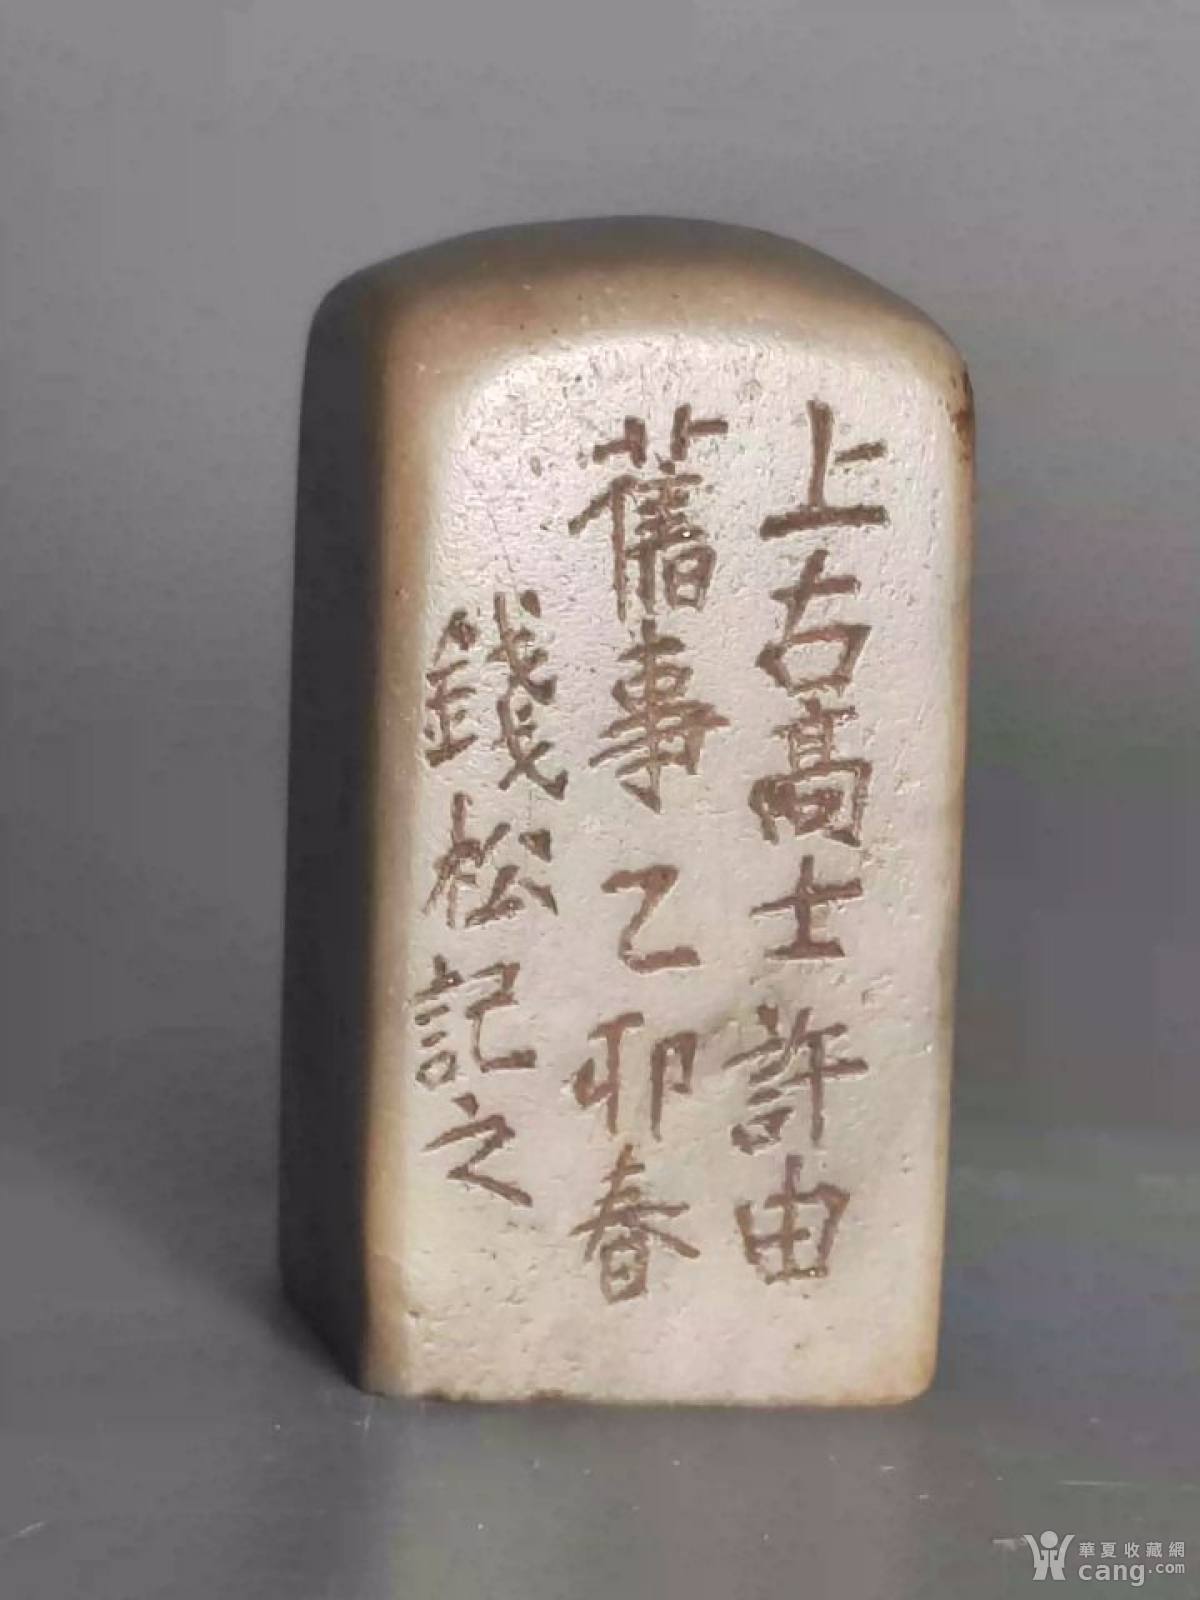 上古高士許由
舊事乙卯春
錢松記之
華夏收藏網
cang.com